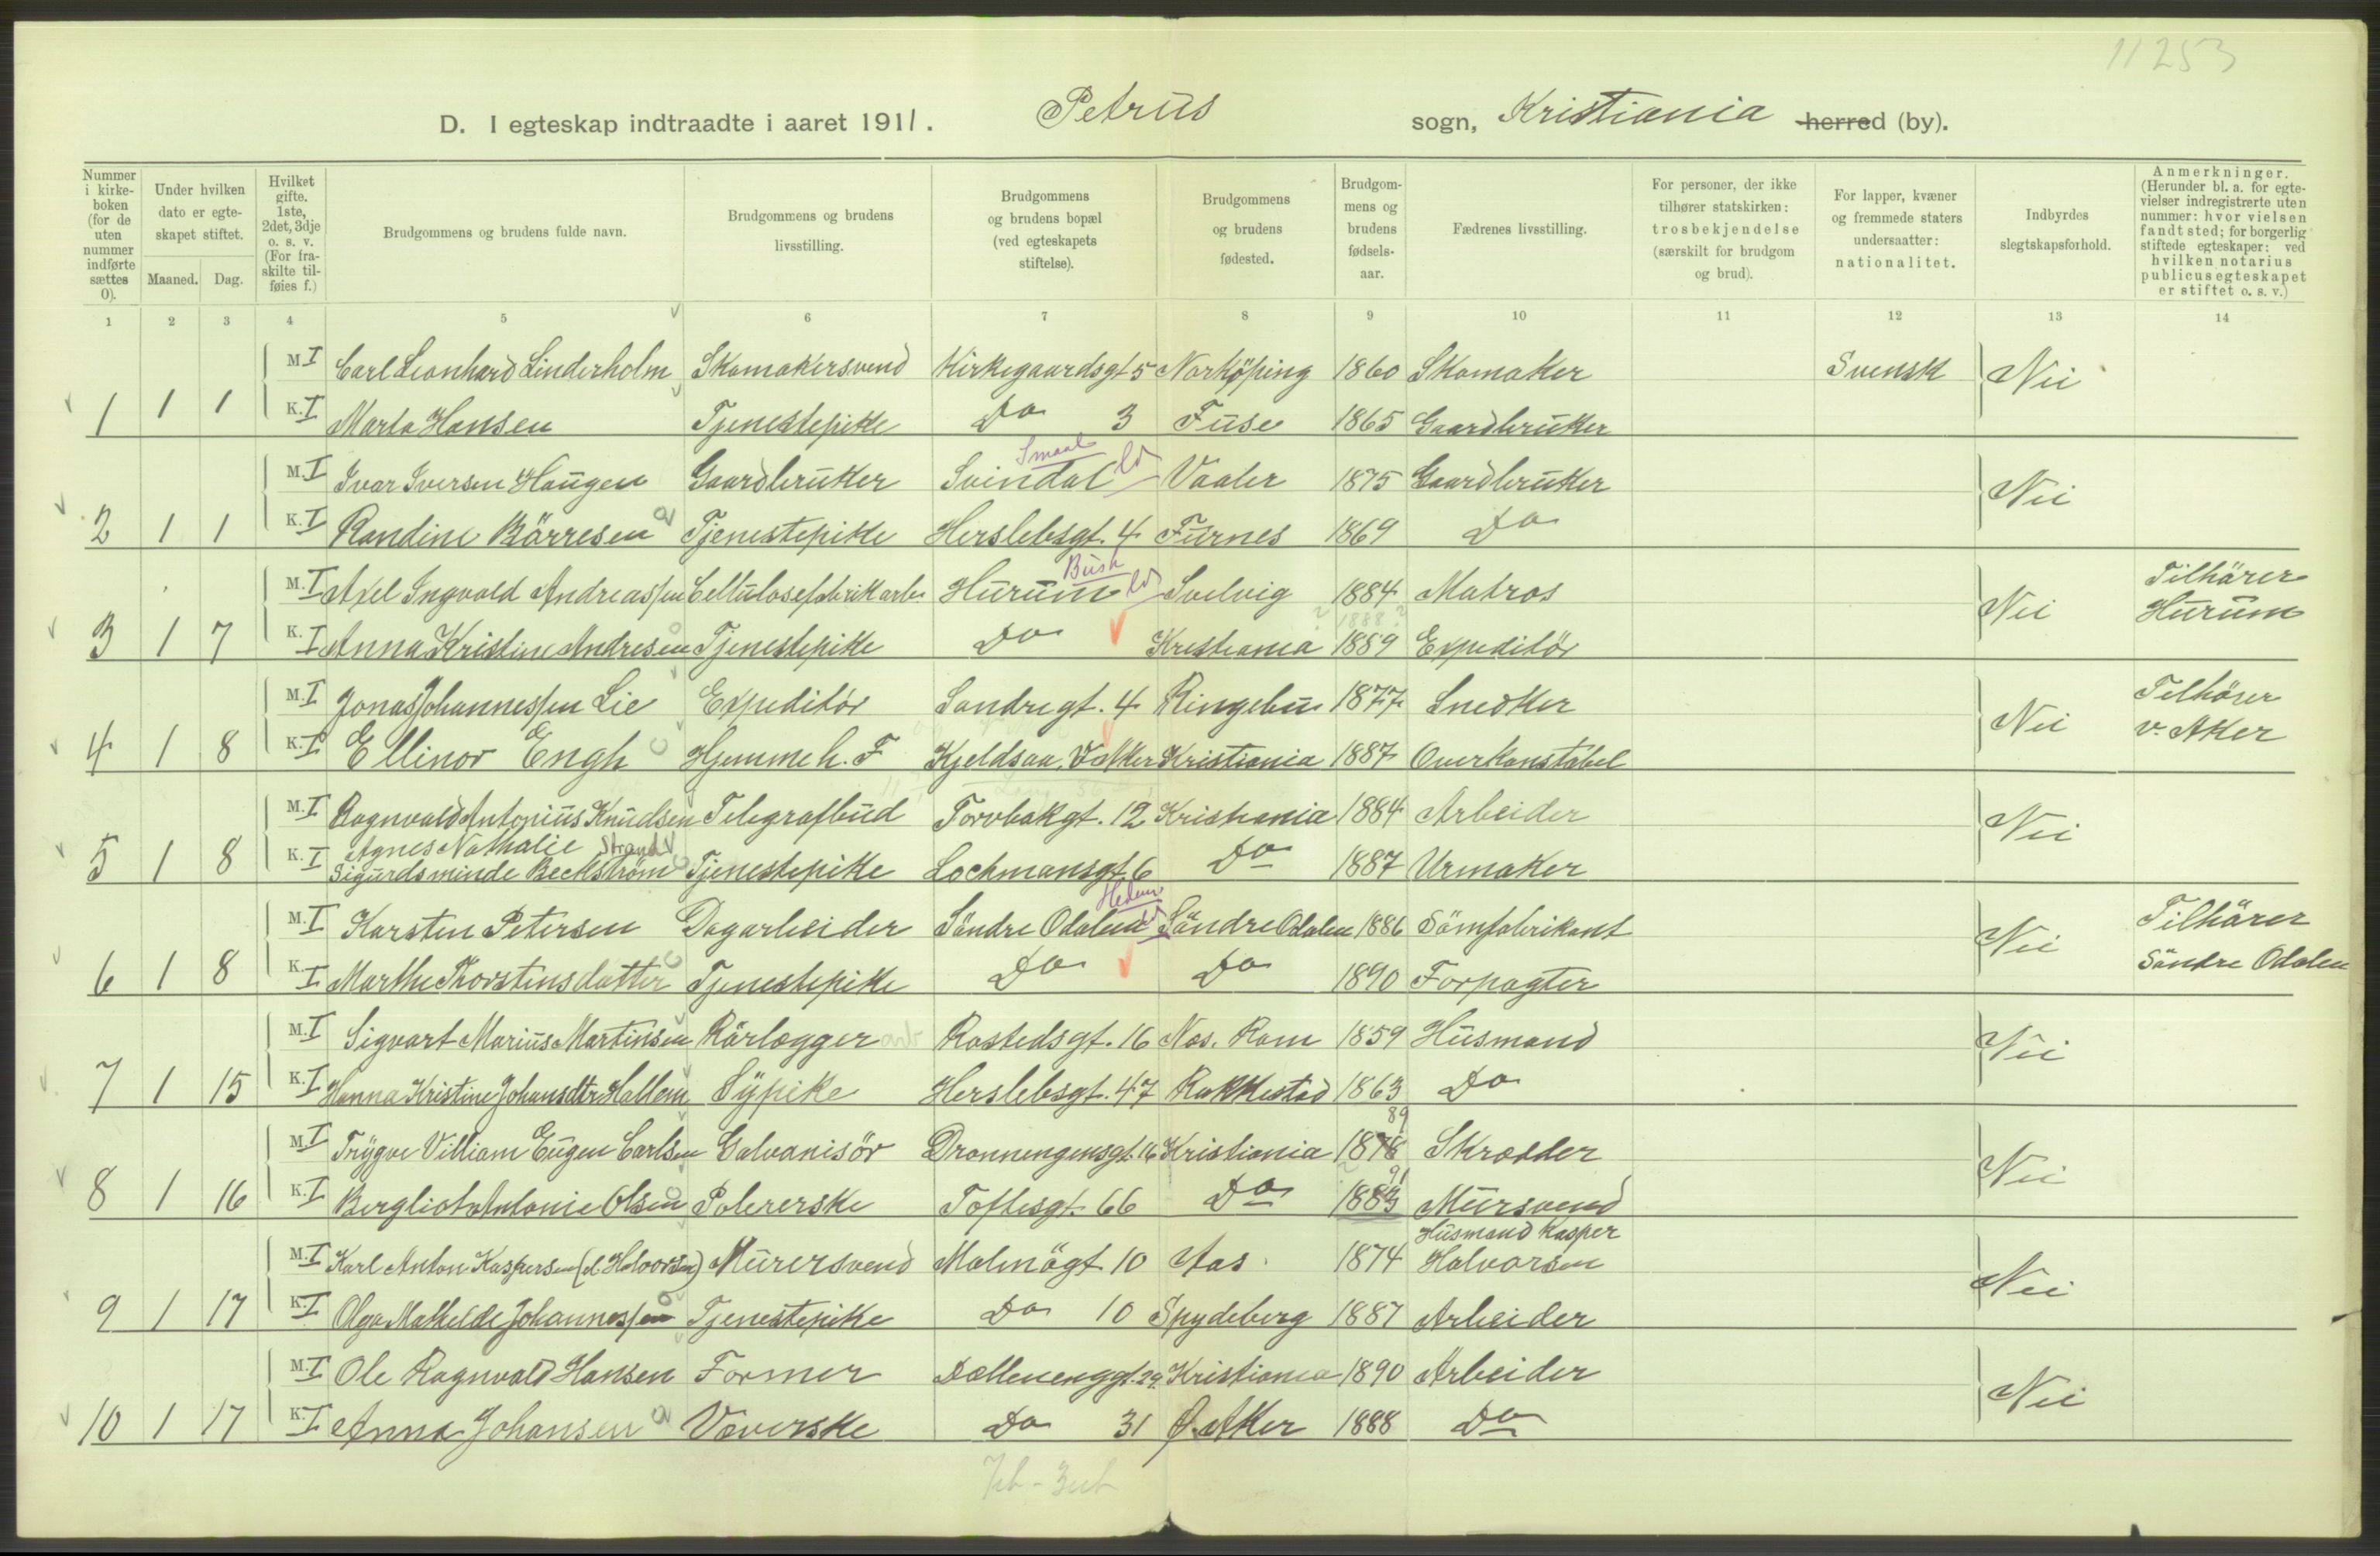 11253
D. I egteskap indtraadte i aaret 1911. Petrus sogn, Kristiania herred (by).
Nummer i kirke-boken (for de uten nummer indførte sættes 0).
Under hvilken dato er egte-skapet stiftet.
Maaned. Dag.
Hvilket gifte. 1ste, 2det, 3dje o. s. v. (For fra-skilte til-føies f.)
Brudgommens og brudens fulde navn.
Brudgommens og brudens livsstilling.
Brudgommens og brudens bopæl (ved egteskapets stiftelse).
Brudgommens og brudens fødested.
Brudgom-mens og brudens fødsels-aar.
Fædrenes livsstilling.
For personer, der ikke tilhører statskirken: trosbekjendelse (særskilt for brudgom og brud).
For lapper, kvæner og fremmede staters undersaatter: nationalitet.
Indbyrdes slegtskapsforhold.
Anmerkninger. (Herunder bl. a. for egte-vielser indregistrerte uten nummer: hvor vielsen fandt sted; for borgerlig stiftede egteskaper: ved hvilken notarius publicus egteskapet er stiftet o. s. v.)
1 2 3 4 5 6 7 8 9 10 11 12 13 14
M. I Carl Leonhard Linderholm Skomakersvend Kirkegaardsgt 5 Norköping 1860 Skomaker Svensk Nei
1 1 1 K. I Marta Hansen Tjenestepike Do 3 Fuse 1865 Gaardbruker
Smaal
M. I Ivar Iversen Haugen Gaardbruker Svindal Vaaler 1875 Gaardbruker Nei
2 1 1 K. I Randine Börresen Tjenestepike Herslebsgt. 4 Furnes 1869 Do
Busk
M. I Axel Ingvald Andreassen Cellulosefabrikarb. Hurum Svelvig 1884 Matros Nei Tilhörer Hurum
1888?
3 1 7 K. I Anna Kristine Andresen Tjenestepike Do Kristiania 1889 Expeditör
M. I Jonas Johannessen Lie Expeditör Sondregt. 4 Ringebu 1877 Snedker Nei Tilhörer v. Aker
4 1 8 K. I Ellinor Engh Hjemme h. F Kjeldsaa, V. Aker Kristiania 1887 Overkonstabel
M. I Ragnvald Antonius Knudsen Telegrafbud Torvbakgt. 12 Kristiania 1884 Arbeider Nei
Agnes Nathalie Strand
5 1 8 K. I Sigurdsminde Beckstrøm Tjenestepike Lochmansgt. 6 Do 1887 Urmaker
Hedm
M. I Karsten Petersen Dagarbeider Söndre Odalen Söndre Odalen 1886 Sömfabrikant Nei Tilhörer Söndre Odalen
6 1 8 K. I Marthe Thorstensdatter Tjenestepike Do Do 1890 Forpagter
M. I Sigvart Marius Martinsen Rörlægger arb Rostedsgt. 16 Nes. Rom 1859 Husmand Nei
7 1 15 K. I Hanna Kristine Johansdtr Hallem Sypike Herslebsgt. 47 Rakkestad 1863 Do
89
M. I Trygve Villiam Eugen Carlsen Galvanisör Dronningensgt. 16 Kristiania 1878 Skrædder Nei
91
8 1 16 K. I Bergliot Antonie Olsen Polererske Toftesgt. 66 Do 1883 Mursvend
Husmand Kasper
M. I Karl Anton Kaspersen (el Halvorsen) Murersvend Malmögt 10 Aas 1874 Halvorsen Nei
9 1 17 K. I Olga Mathilde Johannessen Tjenestepike Do 10 Spydeberg 1887 Arbeider
M. I Ole Ragnvald Hansen Former Dællenenggt. 29 Kristiania 1890 Arbeider Nei
10 1 17 K. I Anna Johansen Væverske Do 31 Ø. Aker 1888 Do